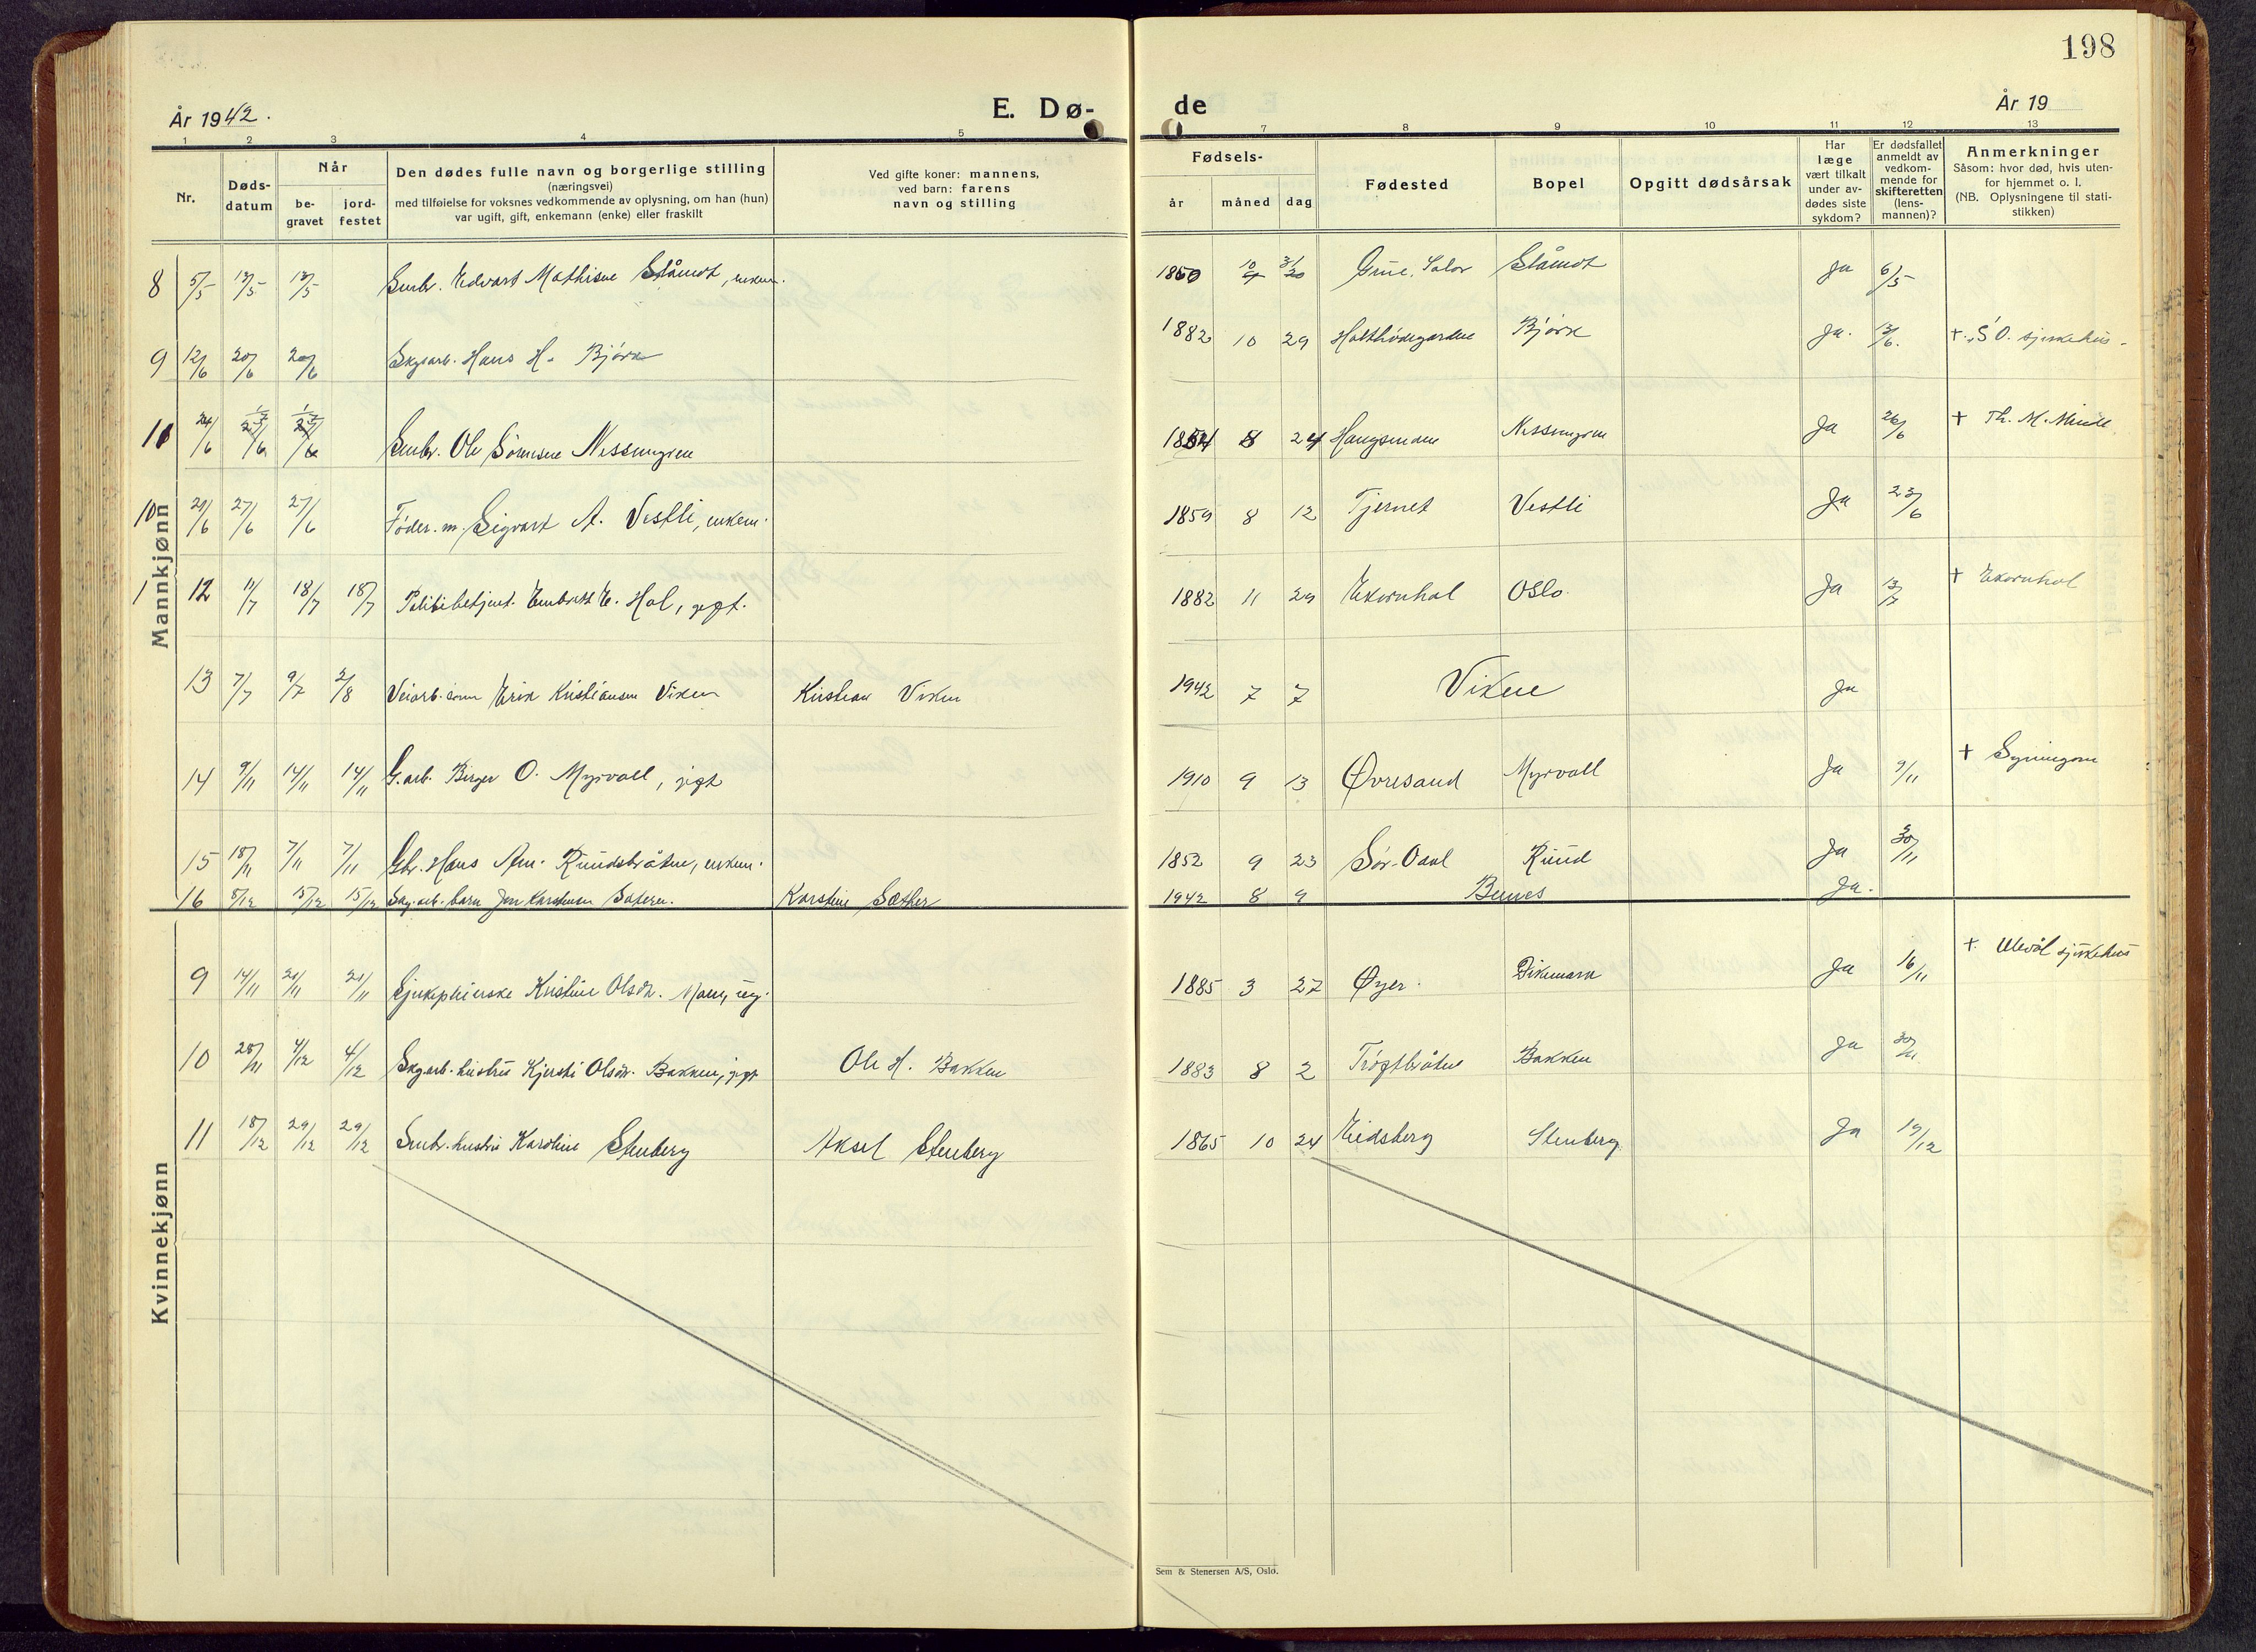 198
År 1942.
E. Dø-
de
År 19
1 2 3 4 5 7 8 9 10 11 12 13
Nr.
Døds-
datum
Når
be-
gravet
jord-
festet
Den dødes fulle navn og borgerlige stilling
(næringsvei)
med tilføielse for voksnes vedkommende av oplysning, om han (hun)
var ugift, gift, enkemann (enke) eller fraskilt
Ved gifte koner: mannens,
ved barn: farens
navn og stilling
Fødsels-
år måned dag
Fødested
Bopel
Opgitt dødsårsak
Har
læge
vært tilkalt
under av-
dødes siste
sykdom?
Er dødsfallet
anmeldt av
vedkom-
mende for
skifteretten
(lens-
mannen)?
Anmerkninger
Såsom: hvor død, hvis uten-
for hjemmet o. l.
(NB. Oplysningene til stati-
stikken)
Mannkjønn
8 5/5 13/5 13/5 Smbr. Edvart Mathisen Slåmot, enkem. 1860 10 31 Grue, Solør Slåmot Ja 6/5
9 12/6 20/6 20/6 Skogsarb. Hans H. Björk 1882 10 29 Björk Ja. 13/6. + S.Ø. sjukehus.
11 24/6 1/7 1/7 Smbr. Ole Sørensen 1854 8 24 Ja 26/6 + Th. M. Minde
10 20/6 27/6 27/6 Føder.m. Sigvart A. Vestli, enkem. 1859 8 12 Tjernet Vestli Ja 23/6
12 11/7 18/7 18/7 Politibetjent. Embret E. Hol, gift. 1882 11 29 Ekornhol Oslo. Ja 13/7 + Ekornhol
13 7/7 9/7 2/8 Veiarb. sønn Erik Kristiansen Viken Kristian Viken 1942 7 7 Viken Ja
14 9/11 14/11 14/11 G.arb. Birger O. Myrvoll, gift 1910 9 13 Øvresand Myrvoll Ja 9/11 +
15 18/11 7/11 7/11 Gbr. Hans Am. Ruudsbråten, enkem. 1852 9 23 Sør-Odal Ruud Ja 30/11
16 8/12 15/12 15/12 Skog.arb. barn Jon Karstensen Karstein Sæther 1942 8 9 Ja.
Kvinnekjønn
9 14/11 21/11 21/11 Sjukepleierske Kristine Olsdr. Moen, ug. 1885 3 27 Øyer. Dikemark Ja 16/11 + Ulevål sjukehus
10 28/11 4/12 4/12 Skog.arb. hustru Kjersti Olsdr. Bakken, gift Ole H. Bakken 1883 8 2 Bakken Ja 30/11
11 18/12 29/12 29/12 Smbr. hustru Karoline Stenberg Aksel Stenberg 1865 10 24 Eidsberg Stenberg Ja 19/12
Sem & Stenersen A/S, Oslo.